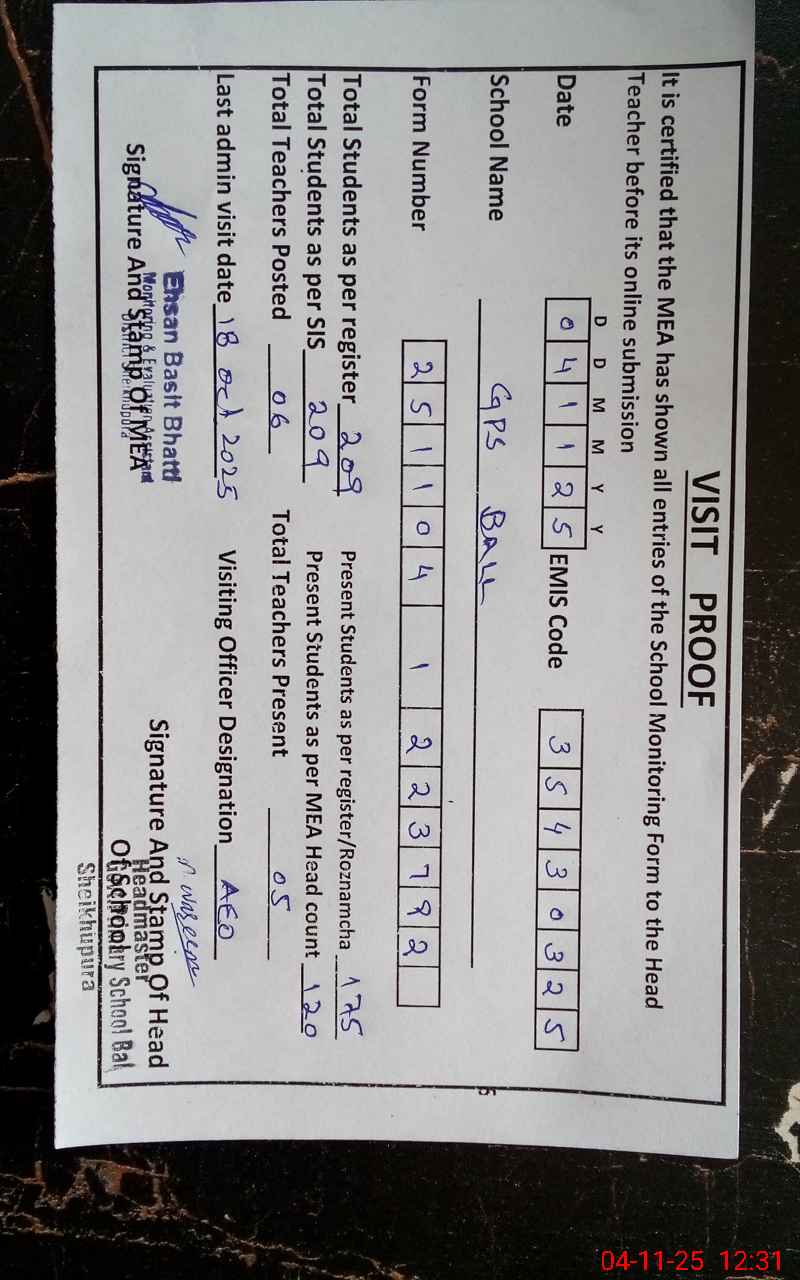 VISIT PROOF
It is certified that the MEA has shown all entries of the School Monitoring Form to the Head
Teacher before its online submission
D D M M Y Y
Date 0 4 1 1 2 5 EMIS Code 3 5 4 3 0 3 2 5
School Name GPS BALL
Form Number 2 5 1 1 0 4 1 2 2 3 7 9 2
Total Students as per register 209 Present Students as per register/Roznamcha 175
Total Students as per SIS 209 Present Students as per MEA Head count 120
Total Teachers Posted 06 Total Teachers Present 05
Last admin visit date 18 Oct 2025 Visiting Officer Designation AEO
Ehsan Basit Bhatti
Monitoring & Evaluation Assistant
District Sheikhupura
Signature And Stamp Of MEA
Waseem
Signature And Stamp Of Head
Of School
Headmaster
School Bal
Sheikhupura
04-11-25 12:31